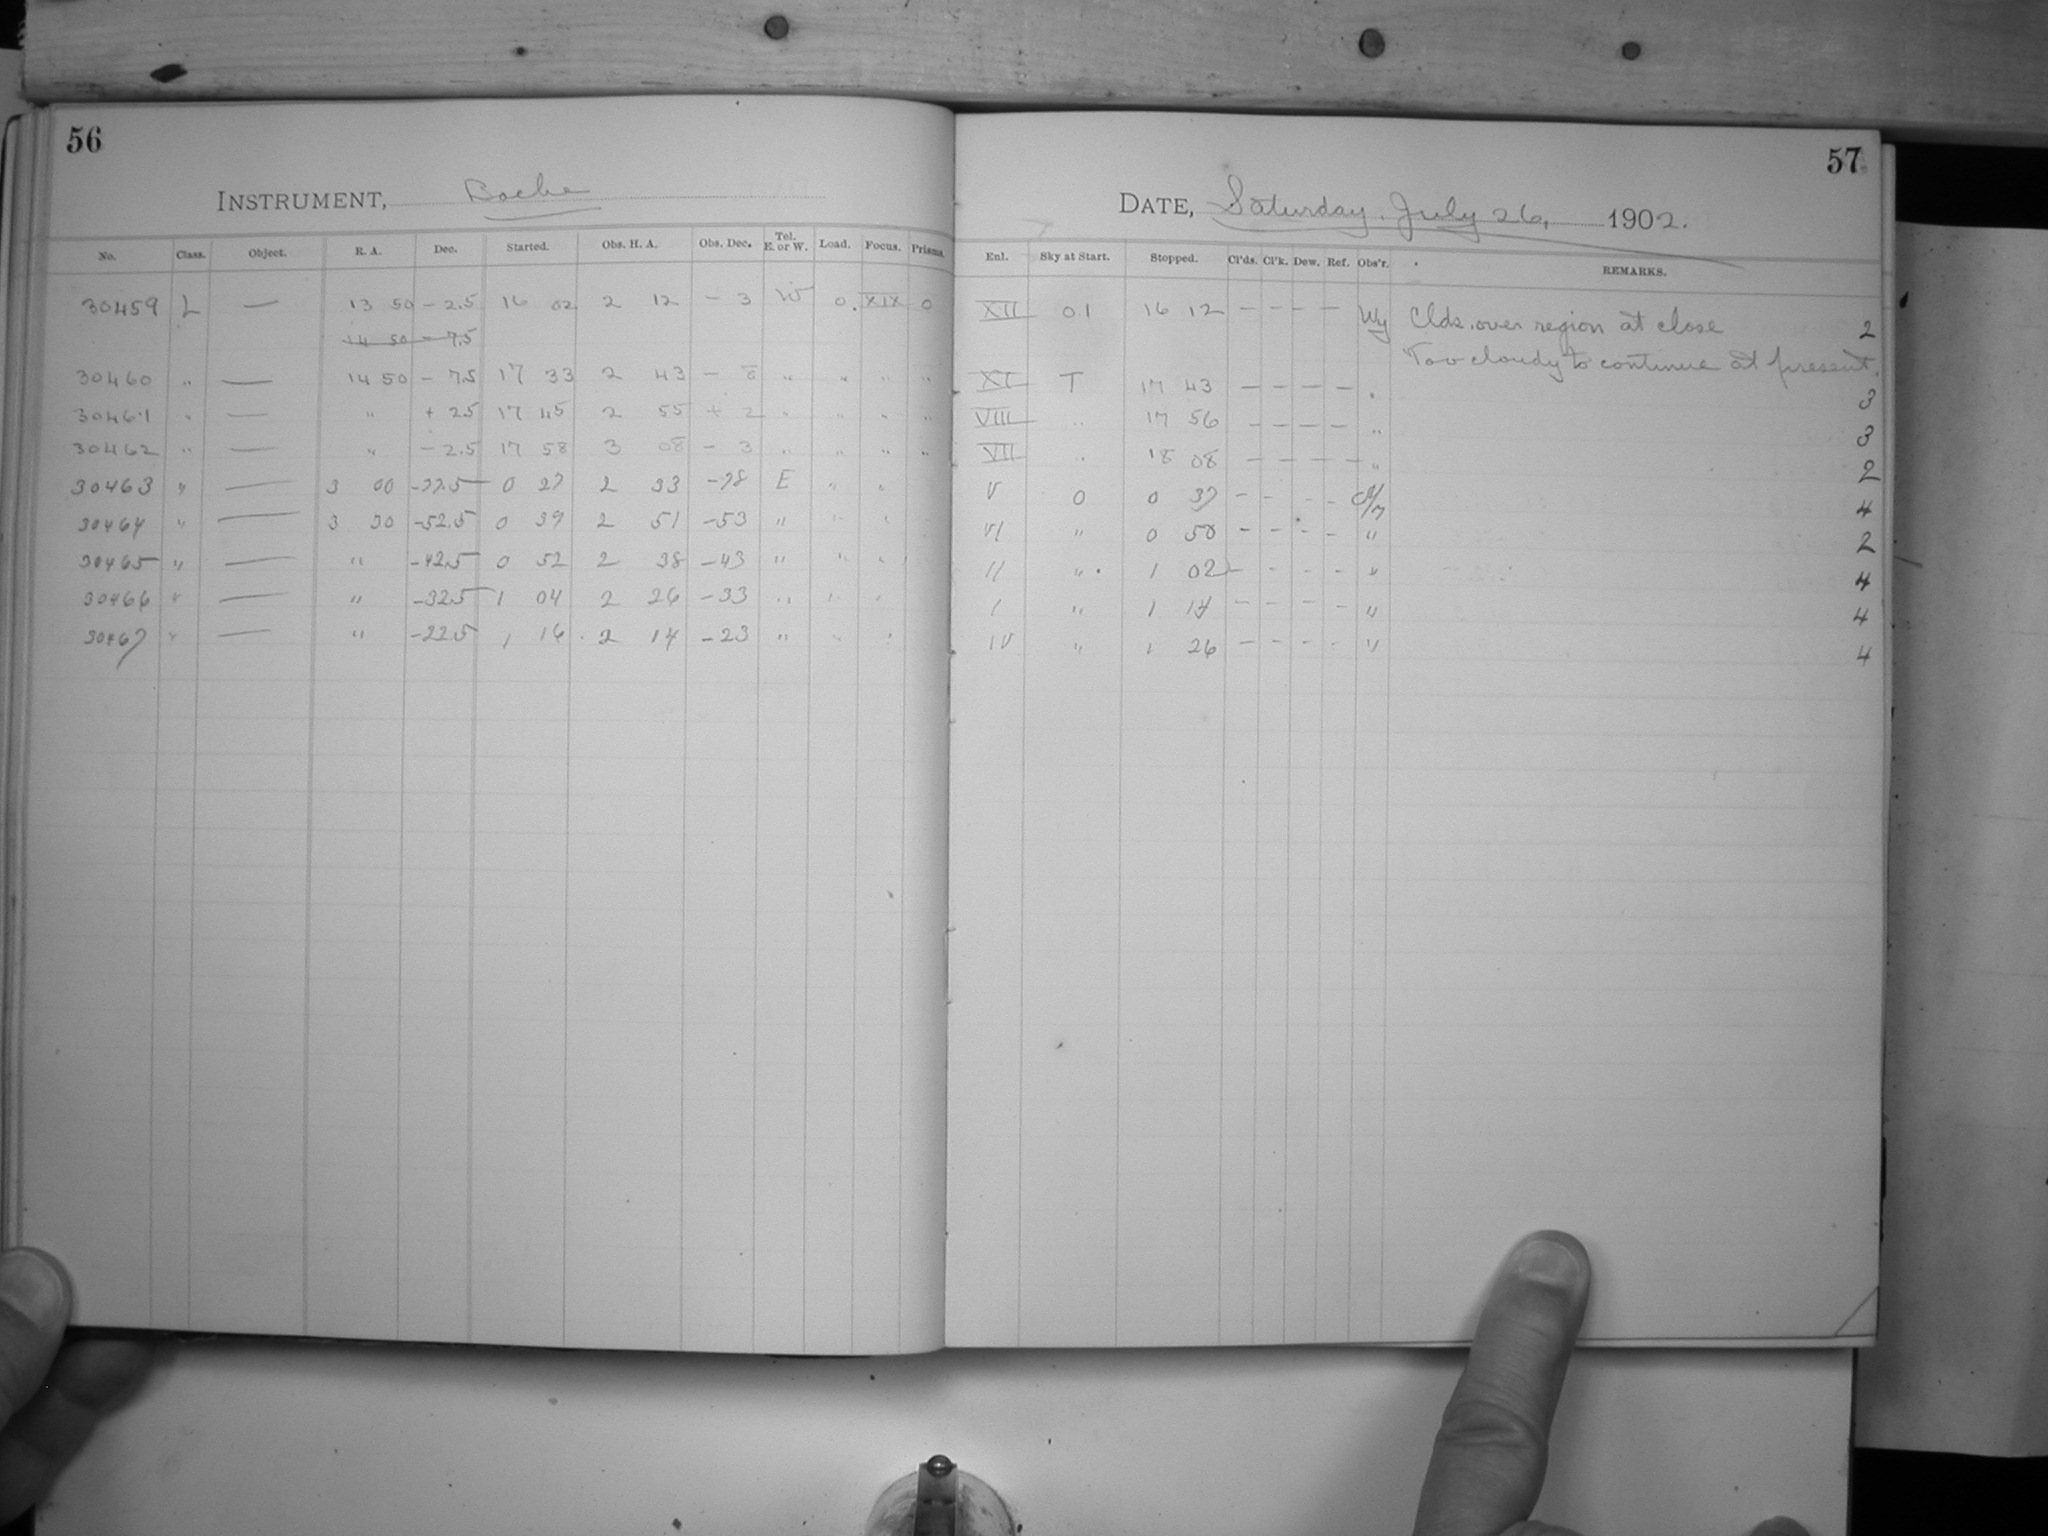 56
INSTRUMENT, Bache
No. Class. Object. R. A. Dec. Started. Obs. H. A. Obs. Dec. Tel. E. or W. Load. Focus. Prisms.
30459 L — 13 50 - 2.5 16 02 2 12 - 3 W 0. XIX 0
14 50 - 7.5
30460 " — 14 50 - 7.5 17 33 2 43 - 8 " " " "
30461 " — " + 2.5 17 45 2 55 + 2 " " " "
30462 " — " - 2.5 17 58 3 08 - 3 " " " "
30463 " — 3 00 -77.5 0 27 2 33 -78 E " "
30464 " — 3 30 -52.5 0 39 2 51 -53 " " "
30465 " — " -42.5 0 52 2 38 -43 " " "
30466 " — " -32.5 1 04 2 26 -33 " " "
30467 " — " -22.5 1 16 2 14 -23 " " "
57
DATE, Saturday, July 26, 1902.
Enl. Sky at Start. Stopped. Cl'ds. Cl'k. Dew. Ref. Obs'r. REMARKS.
XII 0.1 16 12 — — — — Wy Clds. over region at close 2
Too cloudy to continue at present.
XI T 17 43 — — — — " 3
VIII " 17 56 — — — — " 3
VII " 18 08 — — — — " 2
V 0 0 37 - - - - 4
VI " 0 50 - - - - " 2
II " 1 02 - - - - " 4
I " 1 14 - - - - " 4
IV " 1 26 - - - - " 4